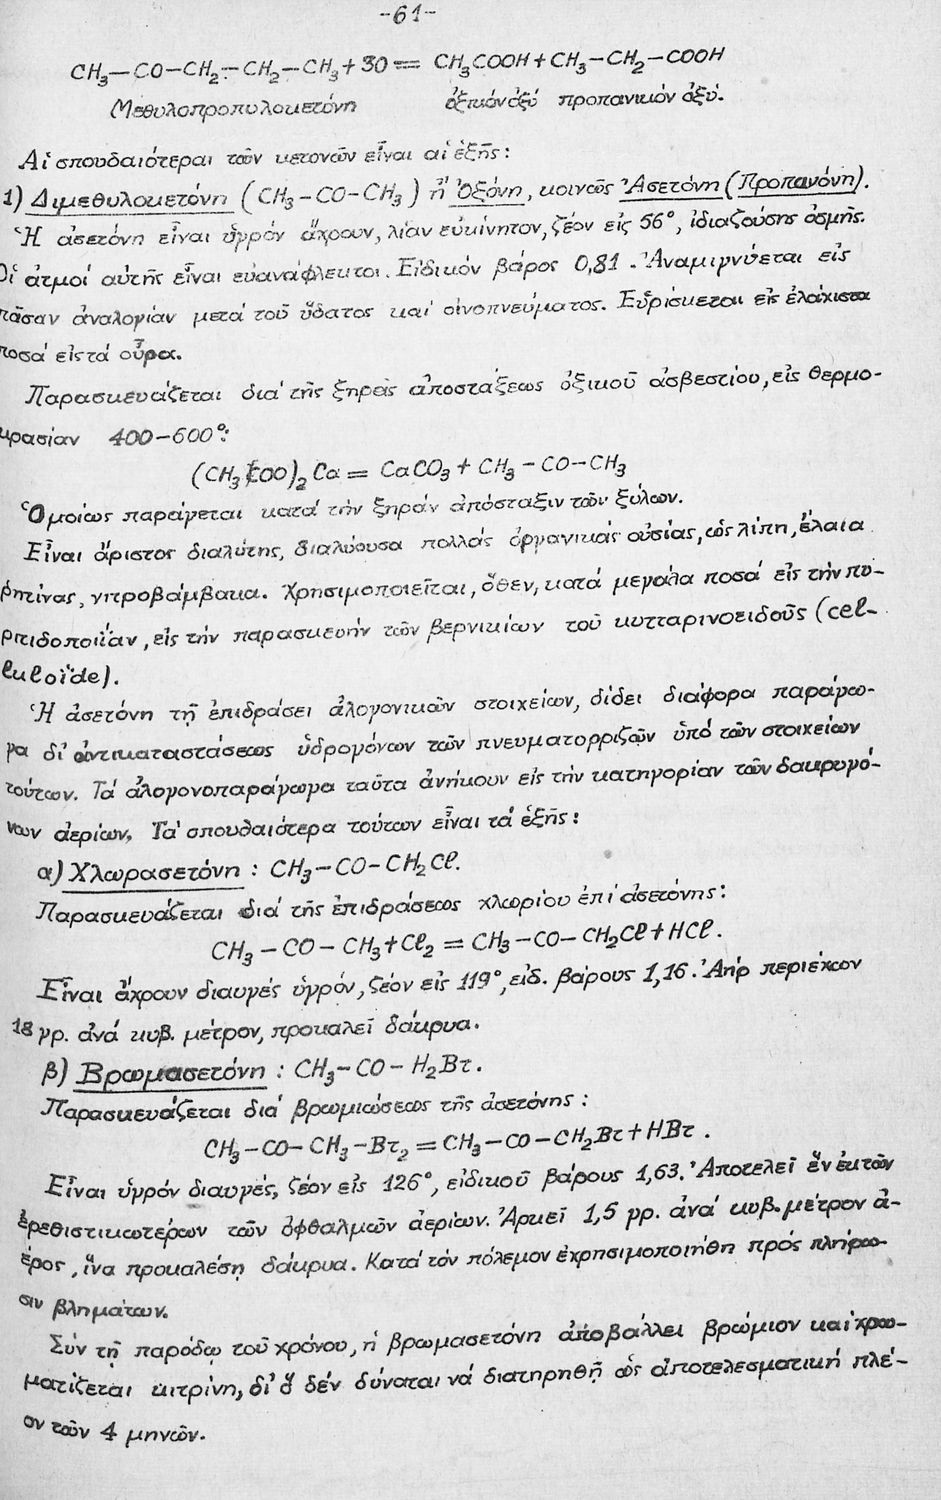 -61-
CH₃—CO—CH₂—CH₂—CH₃+3O = CH₃COOH+CH₃—CH₂—COOH
Μεθυλοπροπυλοκετόνη ὀξικόν ὀξύ προπανικόν ὀξύ.
Αἱ σπουδαιότεραι τῶν κετονῶν εἶναι αἱ ἑξῆς:
1) Διμεθυλοκετόνη (CH₃-CO-CH₃) ἤ Ὀξόνη, κοινῶς Ἀσετόνη (Προπανόνη).
Ἡ ἀσετόνη εἶναι ὑγρόν ἄχρουν, λίαν εὐκίνητον, ζέον εἰς 56°, ἰδιαζούσης ὀσμῆς.
Οἱ ἀτμοί αὐτῆς εἶναι εὐανάφλεκτοι. Εἰδικόν βάρος 0,81. Ἀναμιγνύεται εἰς
πᾶσαν ἀναλογίαν μετά τοῦ ὕδατος καί οἰνοπνεύματος. Εὑρίσκεται εἰς ἐλάχιστα
ποσά εἰς τά οὖρα.
Παρασκευάζεται διά τῆς ξηρᾶς ἀποστάξεως ὀξικοῦ ἀσβεστίου, εἰς θερμο-
κρασίαν 400-600°:
(CH₃COO)₂Ca = CaCO₃ + CH₃-CO-CH₃
Ὁμοίως παράγεται κατά τήν ξηράν ἀπόσταξιν τῶν ξύλων.
Εἶναι ἄριστος διαλύτης, διαλύουσα πολλάς ὀργανικάς οὐσίας, ὡς λίπη, ἔλαια
ρητίνας, νιτροβάμβακα. Χρησιμοποιεῖται, ὅθεν, κατά μεγάλα ποσά εἰς τήν πυ-
ριτιδοποιΐαν, εἰς τήν παρασκευήν τῶν βερνικίων τοῦ κυτταρινοειδοῦς (cel-
luloïde).
Ἡ ἀσετόνη τῇ ἐπιδράσει ἀλογονικῶν στοιχείων, δίδει διάφορα παράγω-
γα δι' ἀντικαταστάσεως ὑδρογόνων τῶν πνευματορριζῶν ὑπό τῶν στοιχείων
τούτων. Τά ἀλογονοπαράγωγα ταῦτα ἀνήκουν εἰς τήν κατηγορίαν τῶν δακρυγό-
νων ἀερίων. Τά σπουδαιότερα τούτων εἶναι τά ἑξῆς:
α) Χλωρασετόνη : CH₃-CO-CH₂Cl.
Παρασκευάζεται διά τῆς ἐπιδράσεως χλωρίου ἐπί ἀσετόνης:
CH₃-CO-CH₃+Cl₂ = CH₃-CO-CH₂Cl+HCl.
Εἶναι ἄχρουν διαυγές ὑγρόν, ζέον εἰς 119°, εἰδ. βάρους 1,16. Ἀήρ περιέχων
18 γρ. ἀνά κυβ. μέτρον, προκαλεῖ δάκρυα.
β) Βρωμασετόνη : CH₃-CO-H₂Br.
Παρασκευάζεται διά βρωμιώσεως τῆς ἀσετόνης:
CH₃-CO-CH₃-Br₂ = CH₃-CO-CH₂Br+HBr.
Εἶναι ὑγρόν διαυγές, ζέον εἰς 126°, εἰδικοῦ βάρους 1,63. Ἀποτελεῖ ἕν ἐκ τῶν
ἐρεθιστικωτέρων τῶν ὀφθαλμῶν ἀερίων. Ἀρκεῖ 1,5 γρ. ἀνά κυβ. μέτρον ἀ-
έρος, ἵνα προκαλέσῃ δάκρυα. Κατά τόν πόλεμον ἐχρησιμοποιήθη πρός πλήρω-
σιν βλημάτων.
Σύν τῇ παρόδῳ τοῦ χρόνου, ἡ βρωμασετόνη ἀποβάλλει βρώμιον καί χρω-
ματίζεται κιτρίνη, δι' ὅ δέν δύναται νά διατηρηθῇ ὡς ἀποτελεσματική πλέ-
ον τῶν 4 μηνῶν.